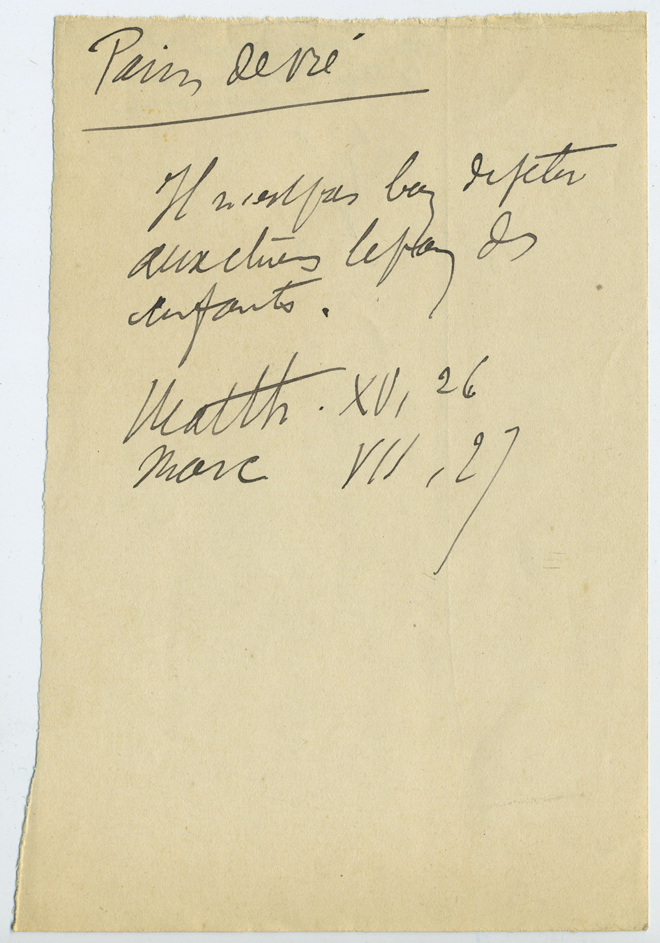 Pain de vie
Il n'est pas bon de jeter
aux chiens le pain des
enfants.
Matth. XV, 26
Marc VII, 27